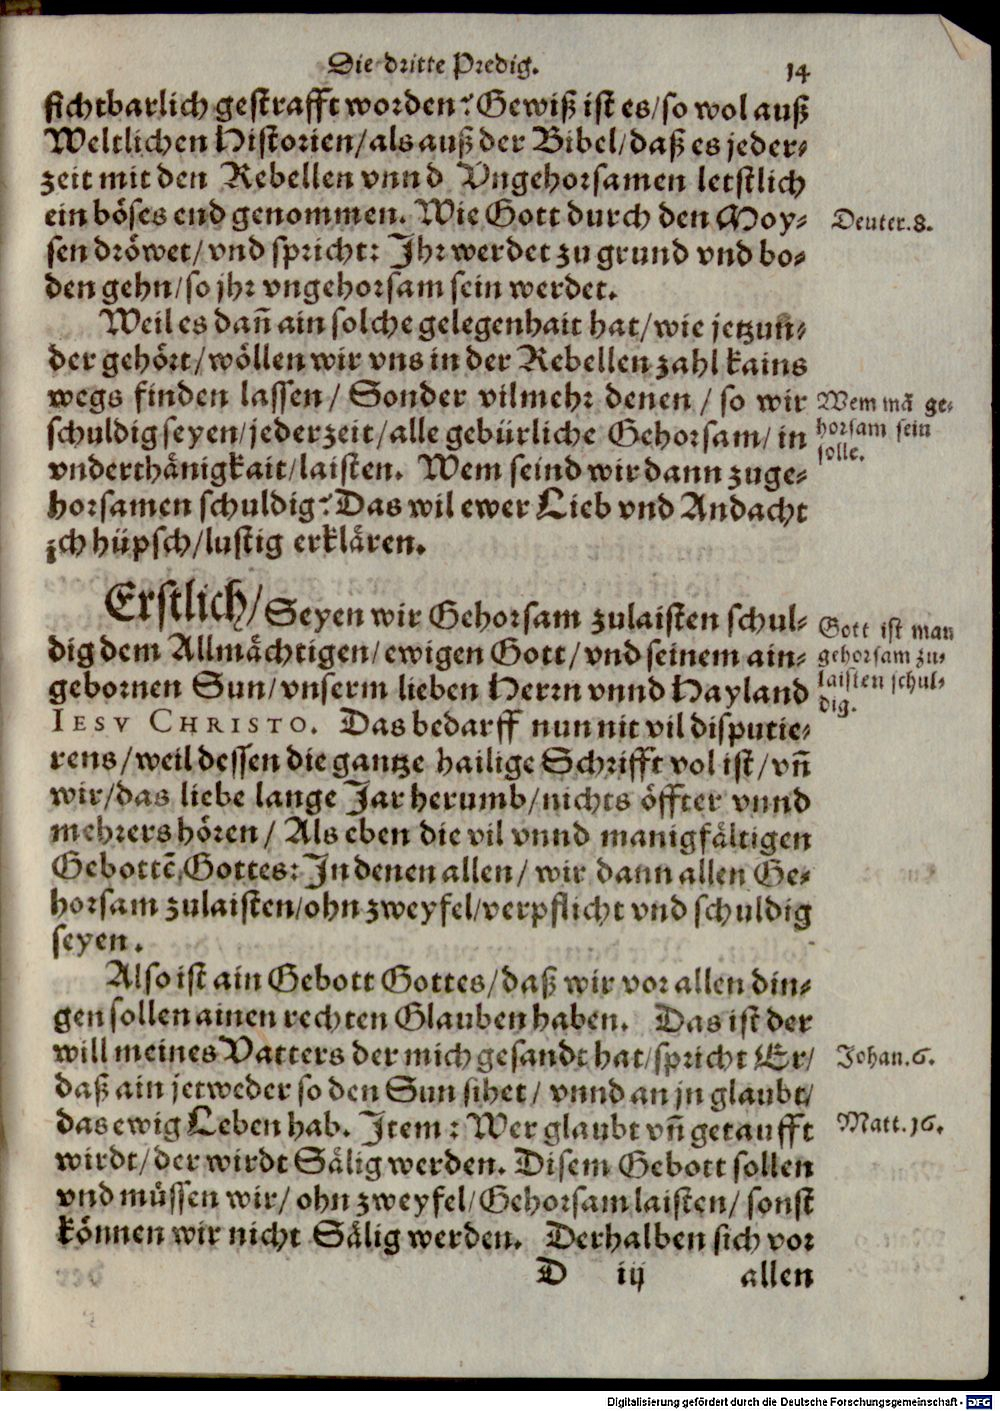 Die dritte Predig. 14
sichtbarlich gestrafft worden? Gewiß ist es/so wol auß
Weltlichen Historien/als auß der Bibel/daß es jeder-
zeit mit den Rebellen vnnd Vngehorsamen letstlich
ein böses end genommen. Wie Gott durch den Moy-
sen dröwet/vnd spricht: Ihr werdet zu grund vnd bo-
den gehn/so jhr vngehorsam sein werdet.
Deuter.8.
Weil es dañ ain solche gelegenhait hat/wie jetzun-
der gehört/wöllen wir vns in der Rebellen zahl kains
wegs finden lassen/ Sonder vilmehr denen / so wir
schuldig seyen/jederzeit/alle gebürliche Gehorsam/in
vnderthänigkait/laisten. Wem seind wir dann zuge-
horsamen schuldig? Das wil ewer Lieb vnd Andacht
jch hüpsch/lustig erklären.
Wem mã ge-
horsam sein
solle.
Erstlich/Seyen wir Gehorsam zulaisten schul-
dig dem Allmächtigen/ewigen Gott/vnd seinem ain-
gebornen Sun/vnserm lieben Herrn vnnd Hayland
IESV CHRISTO. Das bedarff nun nit vil disputie-
rens/weil dessen die gantze hailige Schrifft vol ist/vñ
wir/das liebe lange Jar herumb/nichts öffter vnnd
mehrers hören/ Als eben die vil vnnd manigfältigen
Gebottẽ Gottes: In denen allen/ wir dann allen Ge-
horsam zulaisten/ohn zweyfel/verpflicht vnd schuldig
seyen.
Gott ist man
gehorsam zu-
laisten schul-
dig.
Also ist ain Gebott Gottes/daß wir vor allen din-
gen sollen ainen rechten Glauben haben. Das ist der
will meines Vatters der mich gesandt hat/spricht Er/
daß ain jetweder so den Sun sihet/ vnnd an jn glaubt/
das ewig Leben hab. Item: Wer glaubt vñ getaufft
wirdt/der wirdt Sälig werden. Disem Gebott sollen
vnd müssen wir/ ohn zweyfel/Gehorsam laisten/ sonst
können wir nicht Sälig werden. Derhalben sich vor
Johan.6.
Matt.16.
D iij allen
Digitalisierung gefördert durch die Deutsche Forschungsgemeinschaft - DFG